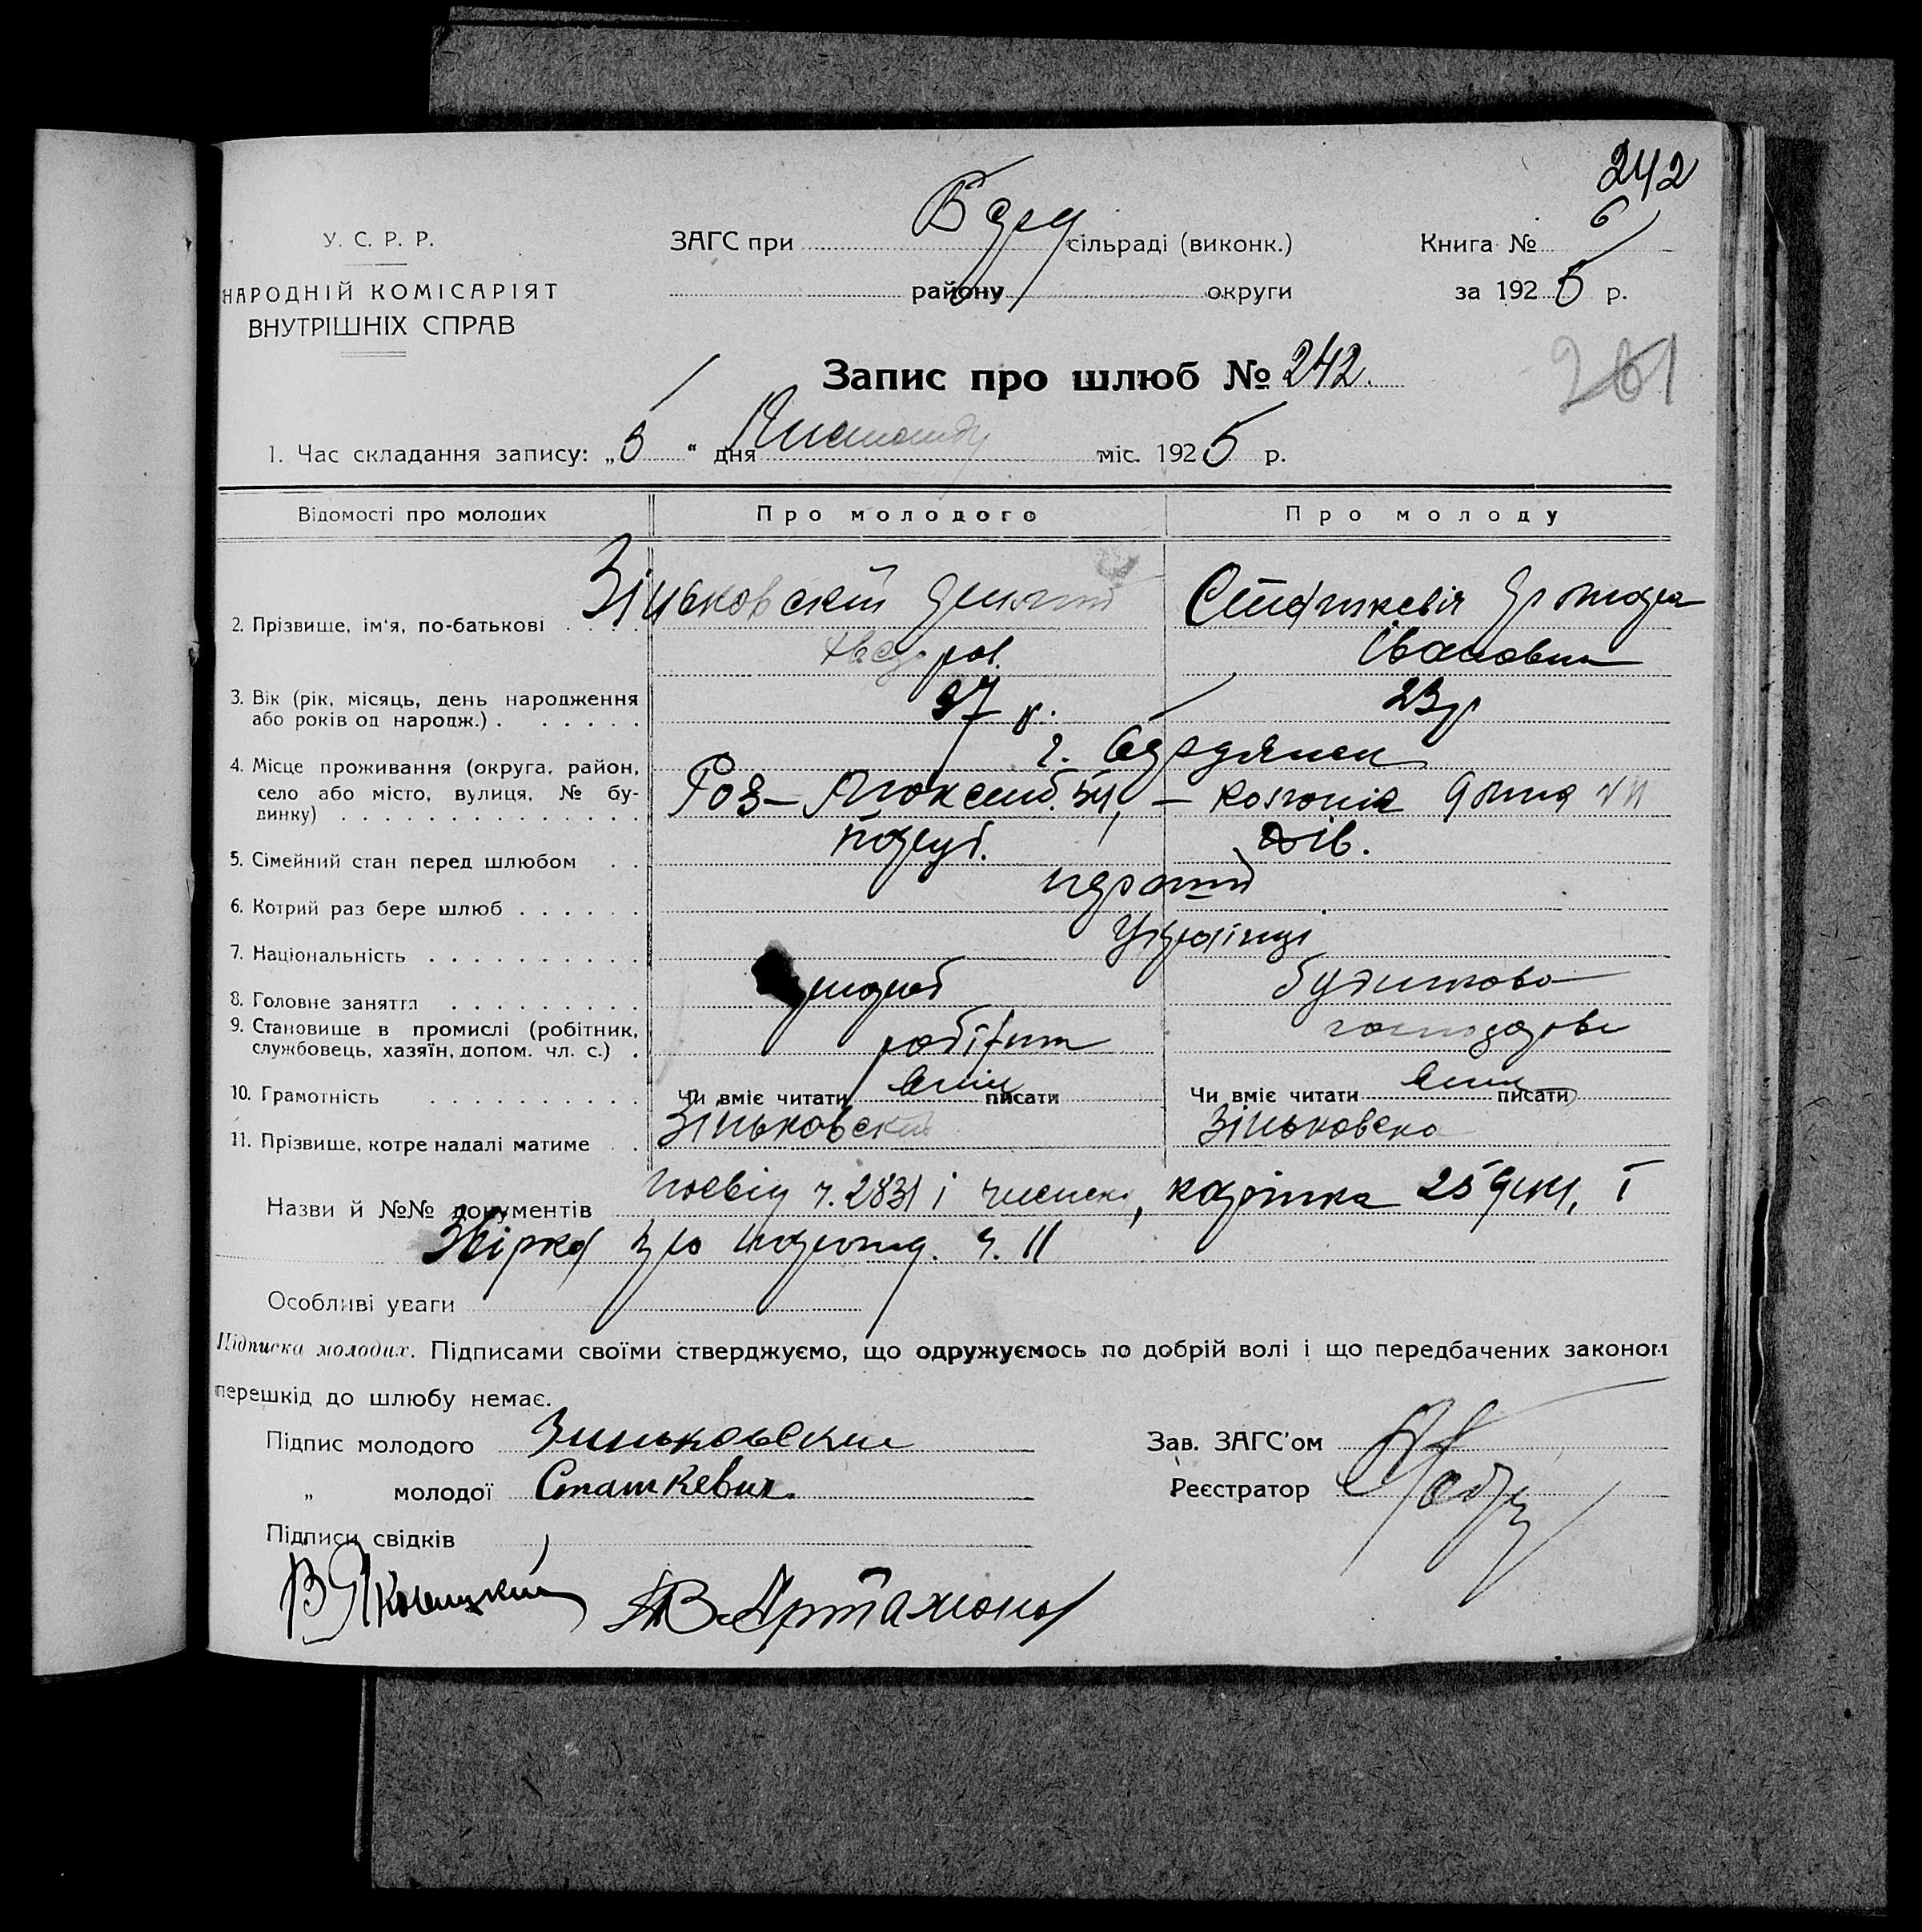 242
У. С. Р. Р.
НАРОДНІЙ КОМІСАРІЯТ
ВНУТРІШНІХ СПРАВ
ЗАГС при сільраді (виконк.)
району округи
Книга № 6
за 1925 р.
Запис про шлюб № 242.
261
1. Час складання запису: „5“ дня Листопаду міс. 1925 р.
Відомості про молодих Про молодого Про молоду
2. Прізвище, ім'я, по-батькові . . . . Зіньковський Сташкевіч
Івановна
3. Вік (рік, місяць, день народження
або років од народж.) . . . . . . 37 р. 23 р
г. Бердянск
4. Місце проживання (округа, район,
село або місто, вулиця, № бу-
динку) . . . . . . . . . . . . . Роз– 54, – колонія
5. Сімейний стан перед шлюбом . . дів.
6. Котрий раз бере шлюб . . . . . . перший
7. Національність . . . . . . . . . . Українці
8. Головне заняття . . . . . . . . .
9. Становище в промислі (робітник,
службовець, хазяїн, допом. чл. с.) . робітник господарка
10. Грамотність . . . . . . . . . . Чи вміє читати вміє писати Чи вміє читати вміє писати
11. Прізвище, котре надалі матиме . . Зіньковський Зіньковска
Назви й №№ документів посвід ч. 2831 і картка 25 і
ч. 11
Особливі уваги
Підписка молодих. Підписами своїми стверджуємо, що одружуємось по добрій волі і що передбачених законом
перешкід до шлюбу немає.
Підпис молодого Зиньковский
„ молодої Сташкевич
Зав. ЗАГС'ом
Реєстратор
Підписи свідків
В. Артамонов